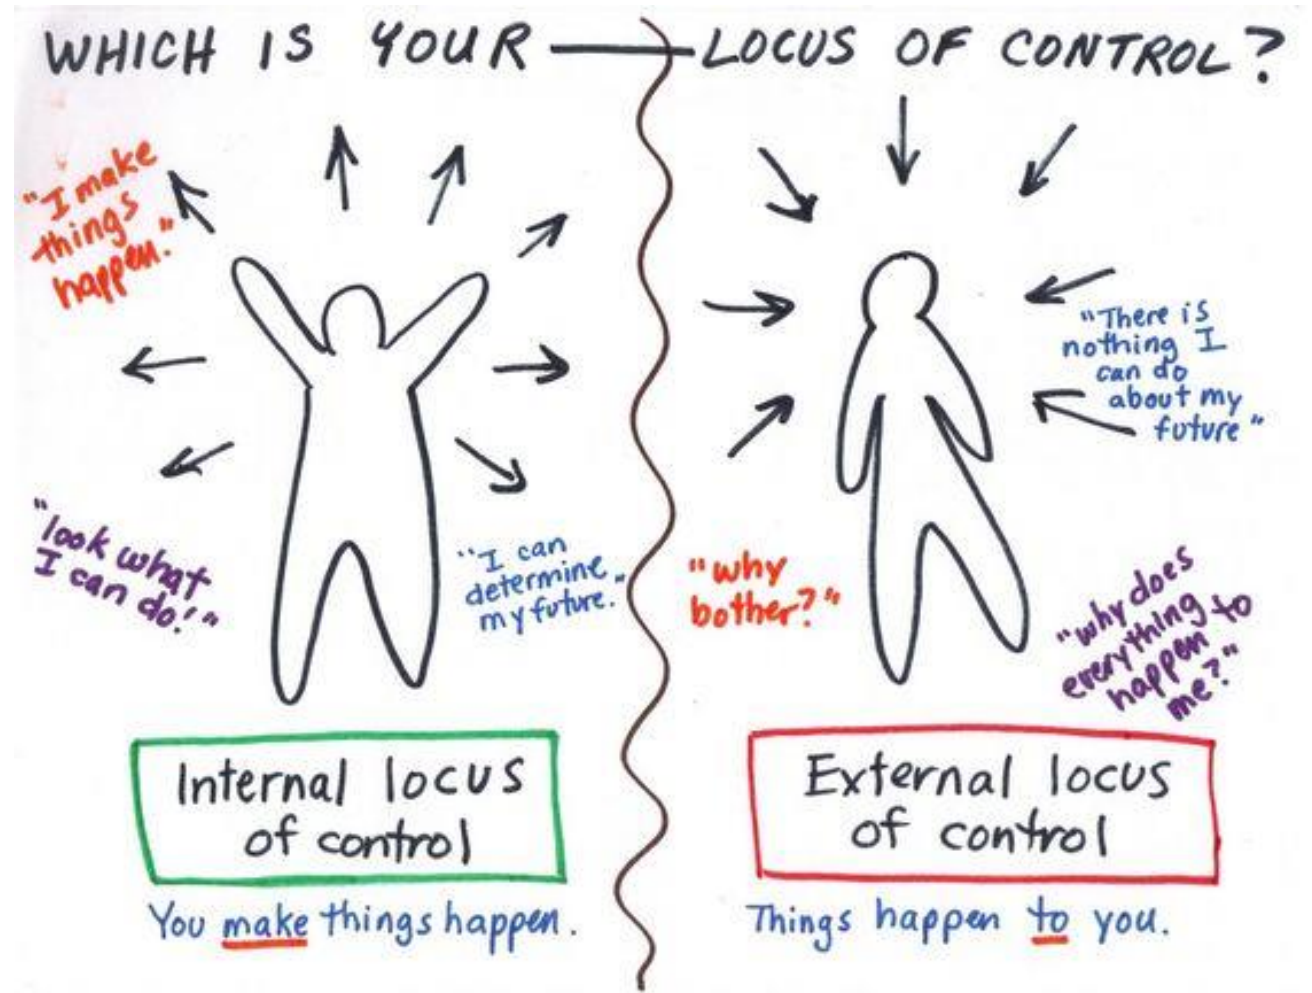 WHICH IS YOUR — LOCUS OF CONTROL?
"I make
things
happen."
"look what
I can do!"
"I can
determine
my future."
Internal locus
of control
You make things happen.
"There is
nothing I
can do
about my
future"
"why
bother?"
"why does
everything to
happen
me?"
External locus
of control
Things happen to you.